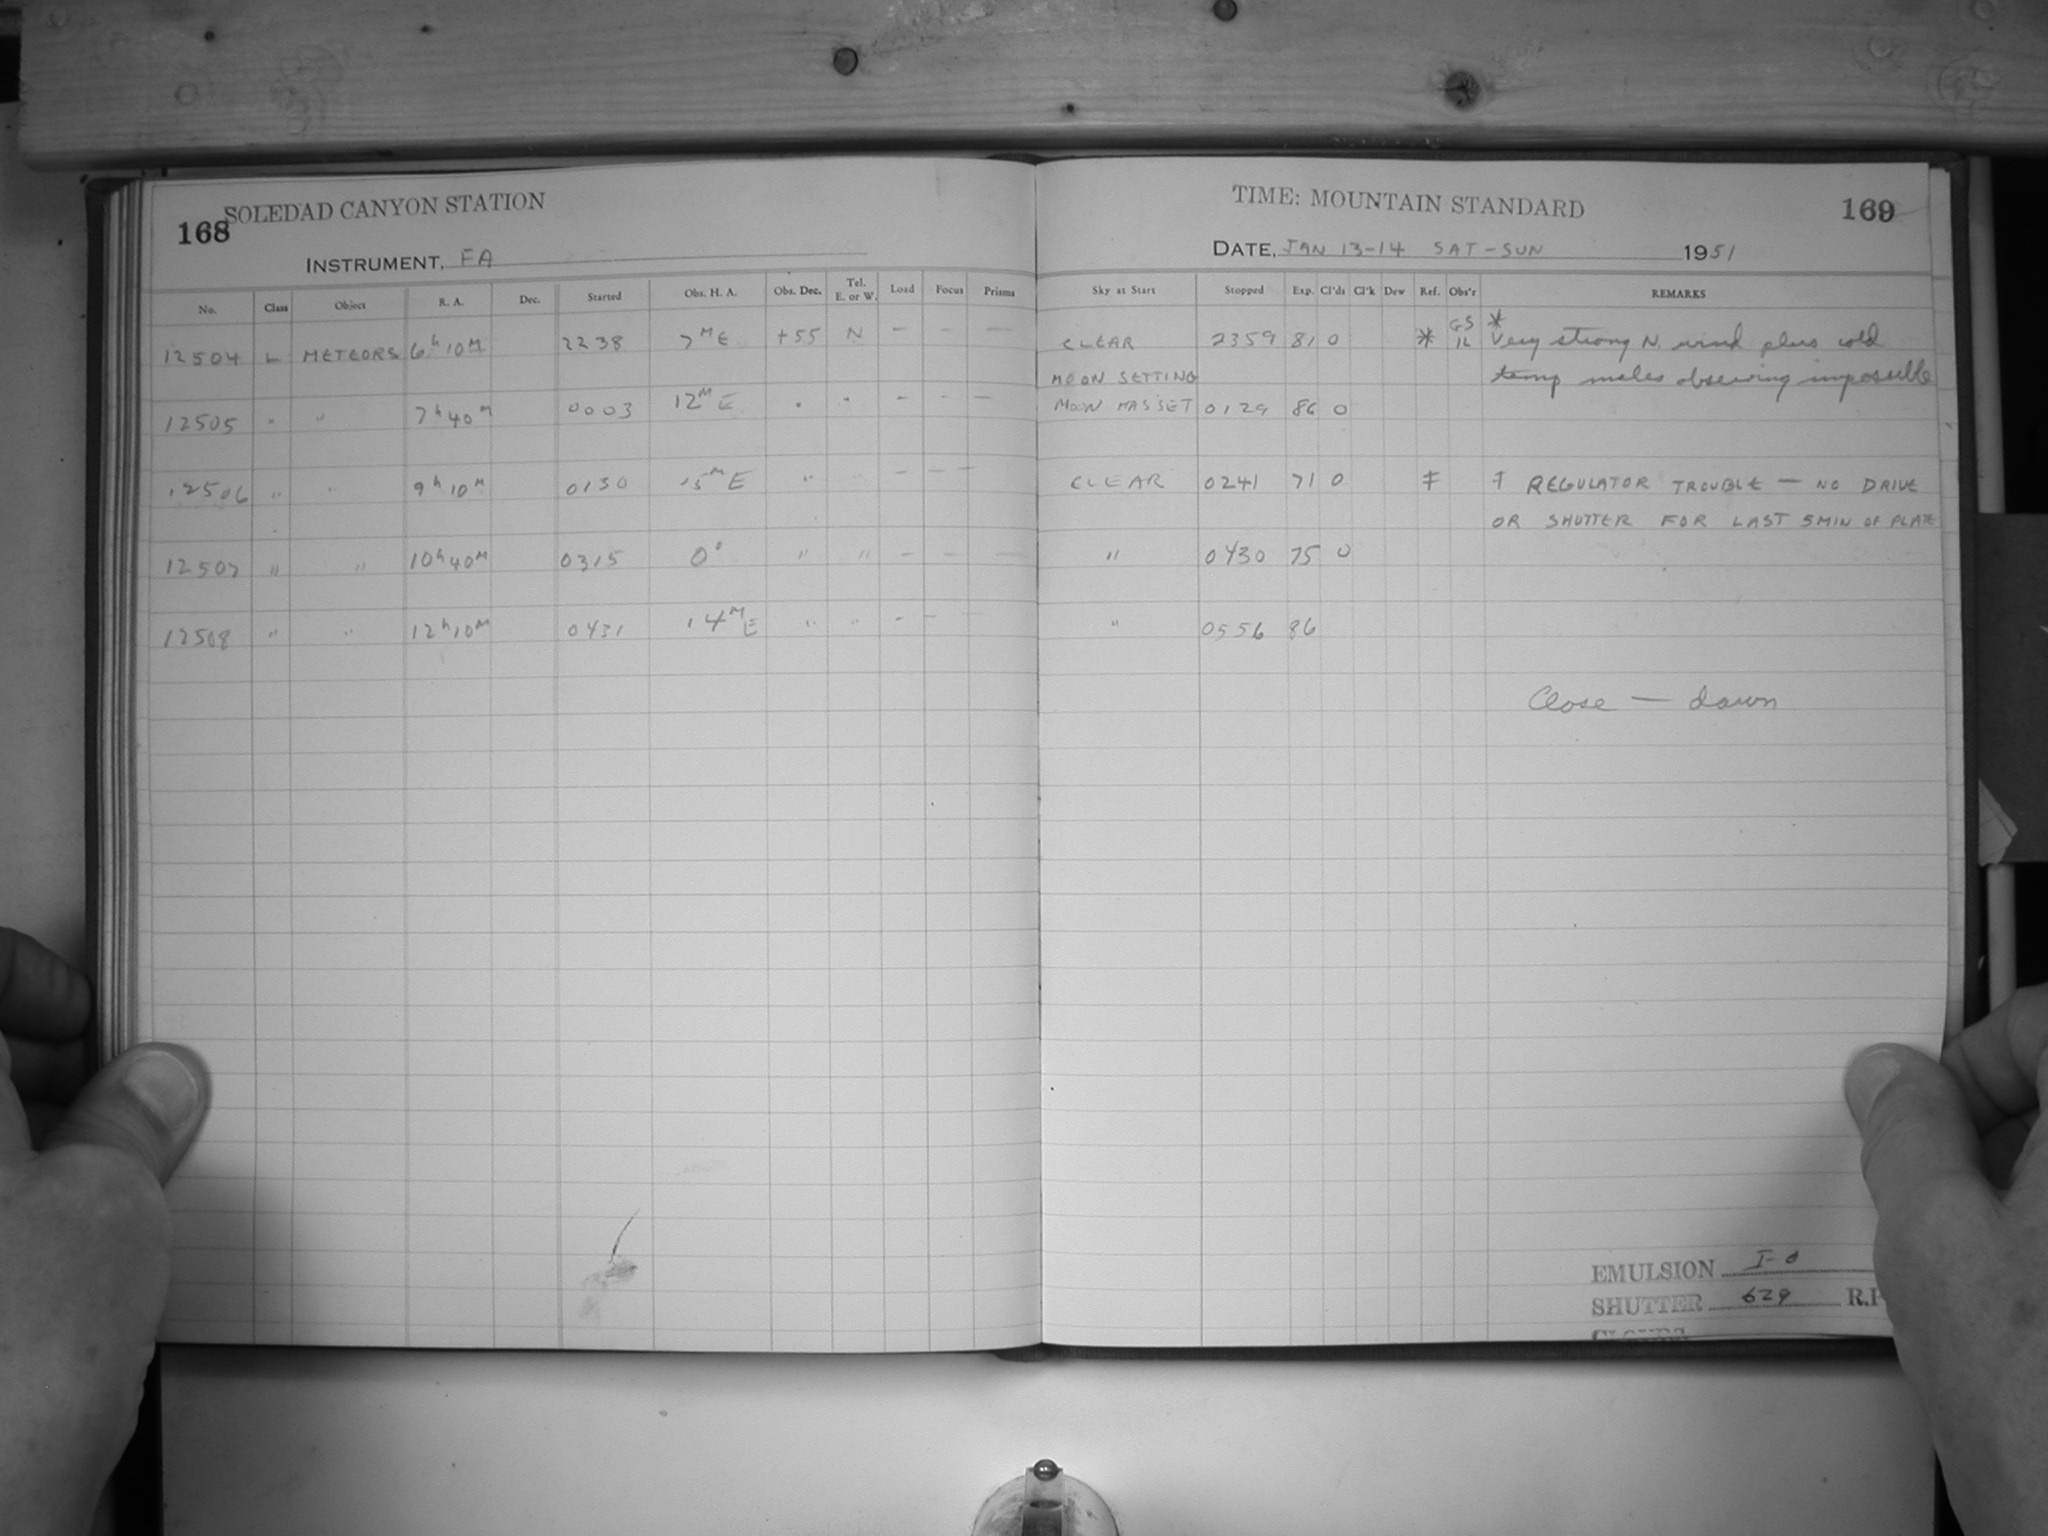 SOLEDAD CANYON STATION
168
INSTRUMENT, FA
No. Class Object R. A. Dec. Started Obs. H. A. Obs. Dec. Tel. E. or W. Load Focus Prisms
12504 L METEORS 6h 10M 2238 7M E +55 N - - -
12505 " " 7h 40M 0003 12M E " " - - -
12506 " " 9h 10M 0130 15M E " " - - -
12507 " " 10h 40M 0315 0° " " - - -
12508 " " 12h 10M 0431 14M E " " - - -
TIME: MOUNTAIN STANDARD
169
DATE, JAN 13-14 SAT-SUN 1951
Sky at Start Stopped Exp. Cl'ds Cl'k Dew Ref. Obs'r REMARKS
CLEAR 2359 81 0 * GS * Very strong N. wind plus cold
MOON SETTING temp makes observing impossible
MOON HAS SET 0129 86 0
CLEAR 0241 71 0 ‡ ‡ REGULATOR TROUBLE — NO DRIVE
OR SHUTTER FOR LAST 5 MIN OF PLATE
" 0430 75 0
" 0556 86
Close — dawn
EMULSION I-O
SHUTTER 629 R.P